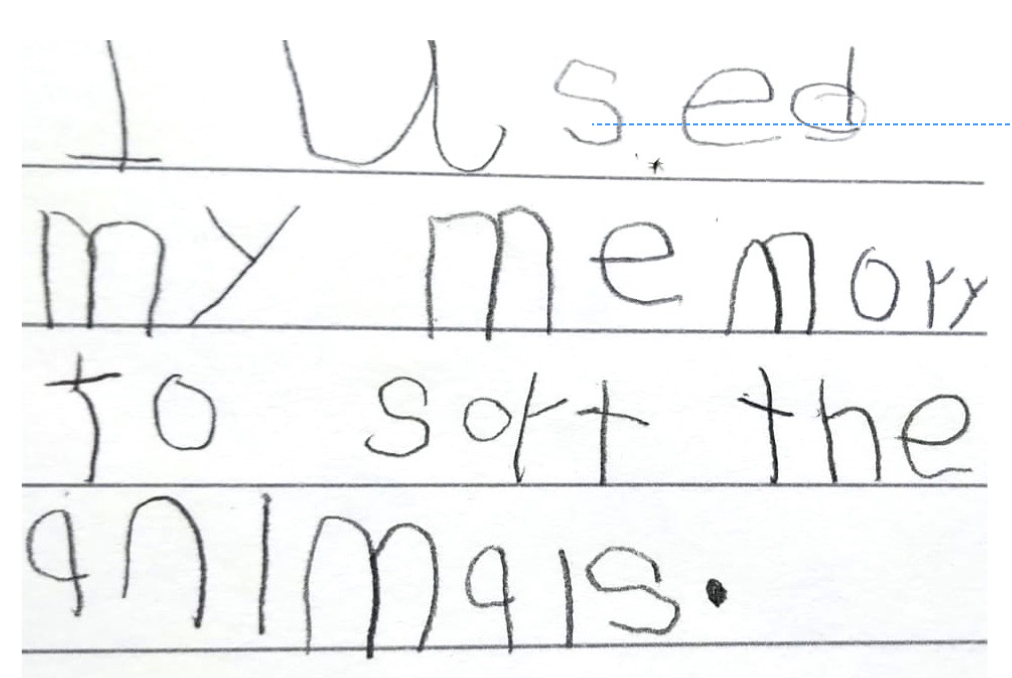 I used
my memory
to sort the
animals.